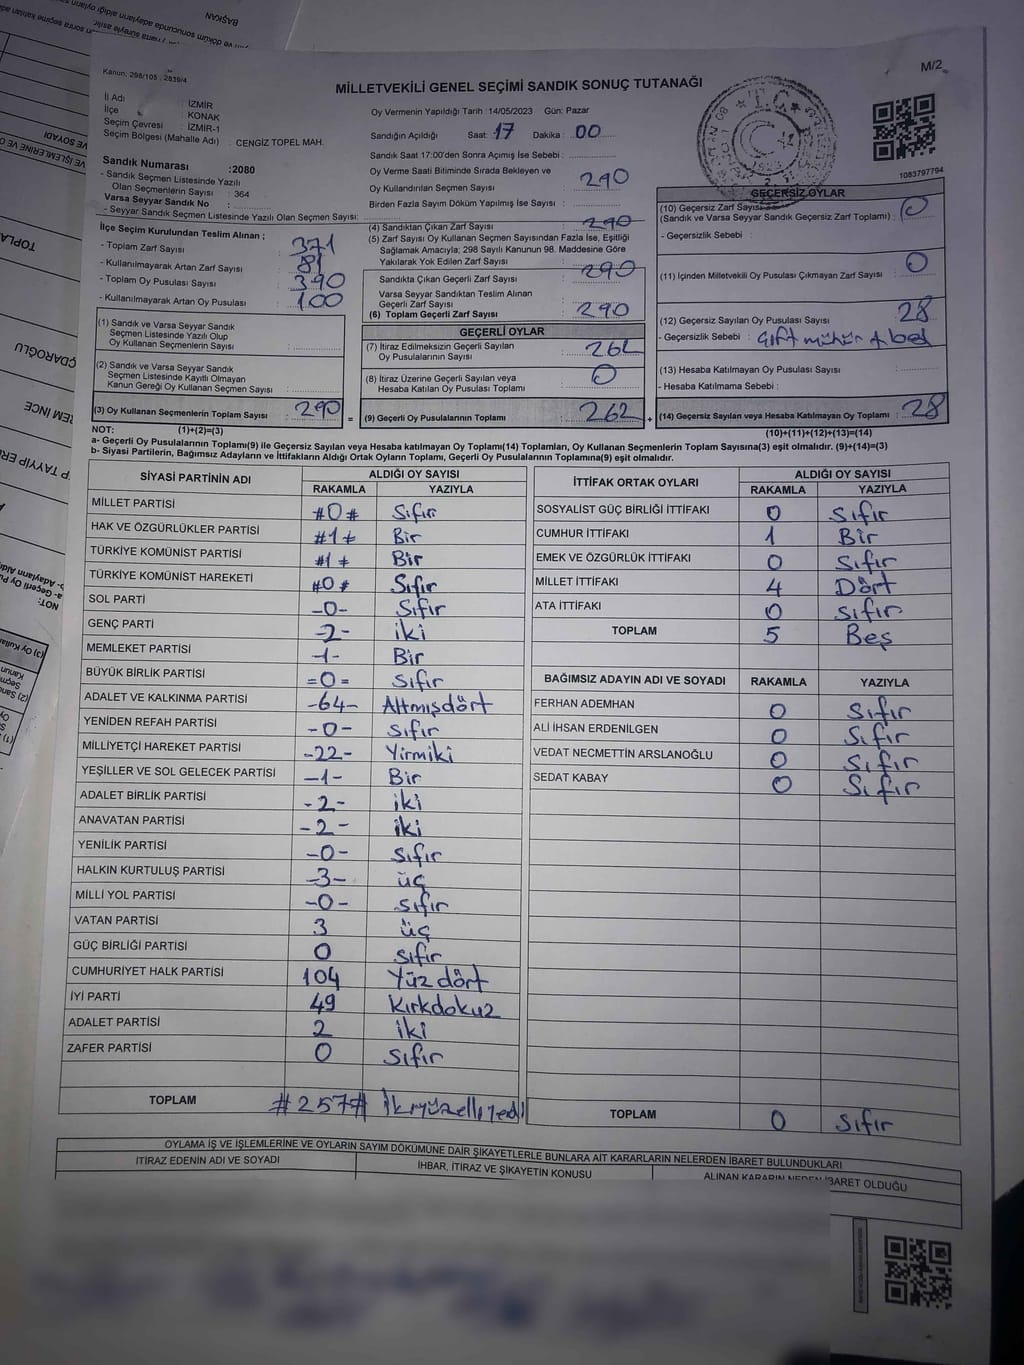 M/2
Kanun: 298/105 , 2839/4
MİLLETVEKİLİ GENEL SEÇİMİ SANDIK SONUÇ TUTANAĞI
İl Adı : İZMİR
İlçe : KONAK
Seçim Çevresi : İZMİR-1
Seçim Bölgesi (Mahalle Adı) : CENGİZ TOPEL MAH.
Sandık Numarası :2080
- Sandık Seçmen Listesinde Yazılı
Olan Seçmenlerin Sayısı : 364
Varsa Seyyar Sandık No :
- Seyyar Sandık Seçmen Listesinde Yazılı Olan Seçmen Sayısı:
Oy Vermenin Yapıldığı Tarih :14/05/2023 Gün: Pazar
Sandığın Açıldığı Saat: 17 Dakika : 00
Sandık Saat 17:00'den Sonra Açımış İse Sebebi :
Oy Verme Saati Bitiminde Sırada Bekleyen ve
Oy Kullandırılan Seçmen Sayısı : 290
Birden Fazla Sayım Döküm Yapılmış İse Sayısı :
1083797794
İlçe Seçim Kurulundan Teslim Alınan ;
- Toplam Zarf Sayısı : 371
- Kullanılmayarak Artan Zarf Sayısı : 81
- Toplam Oy Pusulası Sayısı : 390
- Kullanılmayarak Artan Oy Pusulası : 100
(1) Sandık ve Varsa Seyyar Sandık
Seçmen Listesinde Yazılı Olup
Oy Kullanan Seçmenlerin Sayısı :
(2) Sandık ve Varsa Seyyar Sandık
Seçmen Listesinde Kayıtlı Olmayan
Kanun Gereği Oy Kullanan Seçmen Sayısı :
(3) Oy Kullanan Seçmenlerin Toplam Sayısı : 290
(4) Sandıktan Çıkan Zarf Sayısı : 290
(5) Zarf Sayısı Oy Kullanan Seçmen Sayısından Fazla İse, Eşitliği
Sağlamak Amacıyla; 298 Sayılı Kanunun 98. Maddesine Göre
Yakılarak Yok Edilen Zarf Sayısı :
Sandıkta Çıkan Geçerli Zarf Sayısı : 290
Varsa Seyyar Sandıktan Teslim Alınan
Geçerli Zarf Sayısı
(6) Toplam Geçerli Zarf Sayısı : 290
GEÇERLİ OYLAR
(7) İtiraz Edilmeksizin Geçerli Sayılan
Oy Pusulalarının Sayısı : 262
(8) İtiraz Üzerine Geçerli Sayılan veya
Hesaba Katılan Oy Pusulası Toplamı : 0
= (9) Geçerli Oy Pusulalarının Toplamı : 262
GEÇERSİZ OYLAR
(10) Geçersiz Zarf Sayısı
(Sandık ve Varsa Seyyar Sandık Geçersiz Zarf Toplamı) : 0
- Geçersizlik Sebebi :
(11) İçinden Milletvekili Oy Pusulası Çıkmayan Zarf Sayısı : 0
(12) Geçersiz Sayılan Oy Pusulası Sayısı : 28
- Geçersizlik Sebebi : çift mühür
(13) Hesaba Katılmayan Oy Pusulası Sayısı :
- Hesaba Katılmama Sebebi :
+ (14) Geçersiz Sayılan veya Hesaba Katılmayan Oy Toplamı : 28
NOT: (1)+(2)=(3) (10)+(11)+(12)+(13)=(14)
a- Geçerli Oy Pusulalarının Toplamı(9) ile Geçersiz Sayılan veya Hesaba katılmayan Oy Toplamı(14) Toplamları, Oy Kullanan Seçmenlerin Toplam Sayısına(3) eşit olmalıdır. (9)+(14)=(3)
b- Siyasi Partilerin, Bağımsız Adayların ve İttifakların Aldığı Ortak Oyların Toplamı, Geçerli Oy Pusulalarının Toplamına(9) eşit olmalıdır.
SİYASİ PARTİNİN ADI ALDIĞI OY SAYISI
RAKAMLA YAZIYLA
MİLLET PARTİSİ #0# Sıfır
HAK VE ÖZGÜRLÜKLER PARTİSİ #1# Bir
TÜRKİYE KOMÜNİST PARTİSİ #1# Bir
TÜRKİYE KOMÜNİST HAREKETİ #0# Sıfır
SOL PARTİ -0- Sıfır
GENÇ PARTİ -2- iki
MEMLEKET PARTİSİ -1- Bir
BÜYÜK BİRLİK PARTİSİ =0= Sıfır
ADALET VE KALKINMA PARTİSİ -64- Altmışdört
YENİDEN REFAH PARTİSİ -0- Sıfır
MİLLİYETÇİ HAREKET PARTİSİ -22- Yirmiki
YEŞİLLER VE SOL GELECEK PARTİSİ -1- Bir
ADALET BİRLİK PARTİSİ -2- iki
ANAVATAN PARTİSİ -2- iki
YENİLİK PARTİSİ -0- Sıfır
HALKIN KURTULUŞ PARTİSİ -3- üç
MİLLİ YOL PARTİSİ -0- Sıfır
VATAN PARTİSİ 3 üç
GÜÇ BİRLİĞİ PARTİSİ 0 Sıfır
CUMHURİYET HALK PARTİSİ 104 Yüz dört
İYİ PARTİ 49 Kırkdokuz
ADALET PARTİSİ 2 iki
ZAFER PARTİSİ 0 Sıfır
TOPLAM #257# İkiyüzelliyedi
İTTİFAK ORTAK OYLARI ALDIĞI OY SAYISI
RAKAMLA YAZIYLA
SOSYALİST GÜÇ BİRLİĞİ İTTİFAKI 0 Sıfır
CUMHUR İTTİFAKI 1 Bir
EMEK VE ÖZGÜRLÜK İTTİFAKI 0 Sıfır
MİLLET İTTİFAKI 4 Dört
ATA İTTİFAKI 0 Sıfır
TOPLAM 5 Beş
BAĞIMSIZ ADAYIN ADI VE SOYADI RAKAMLA YAZIYLA
FERHAN ADEMHAN 0 Sıfır
ALİ İHSAN ERDENİLGEN 0 Sıfır
VEDAT NECMETTİN ARSLANOĞLU 0 Sıfır
SEDAT KABAY 0 Sıfır
TOPLAM 0 Sıfır
OYLAMA İŞ VE İŞLEMLERİNE VE OYLARIN SAYIM DÖKÜMÜNE DAİR ŞİKAYETLERLE BUNLARA AİT KARARLARIN NELERDEN İBARET BULUNDUKLARI
İTİRAZ EDENİN ADI VE SOYADI İHBAR, İTİRAZ VE ŞİKAYETİN KONUSU ALINAN KARARIN NEDEN İBARET OLDUĞU